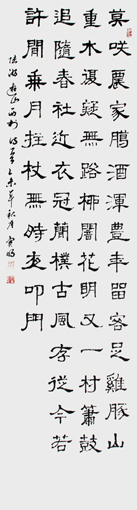 莫咲農家臘酒渾豊年留客足雞豚山
重木復疑無路柳闇花明又一村簫鼓
追隨春社近衣冠簡樸古風存從今若
許閒乗月拄杖無時夜叩門
陸游遊山西村